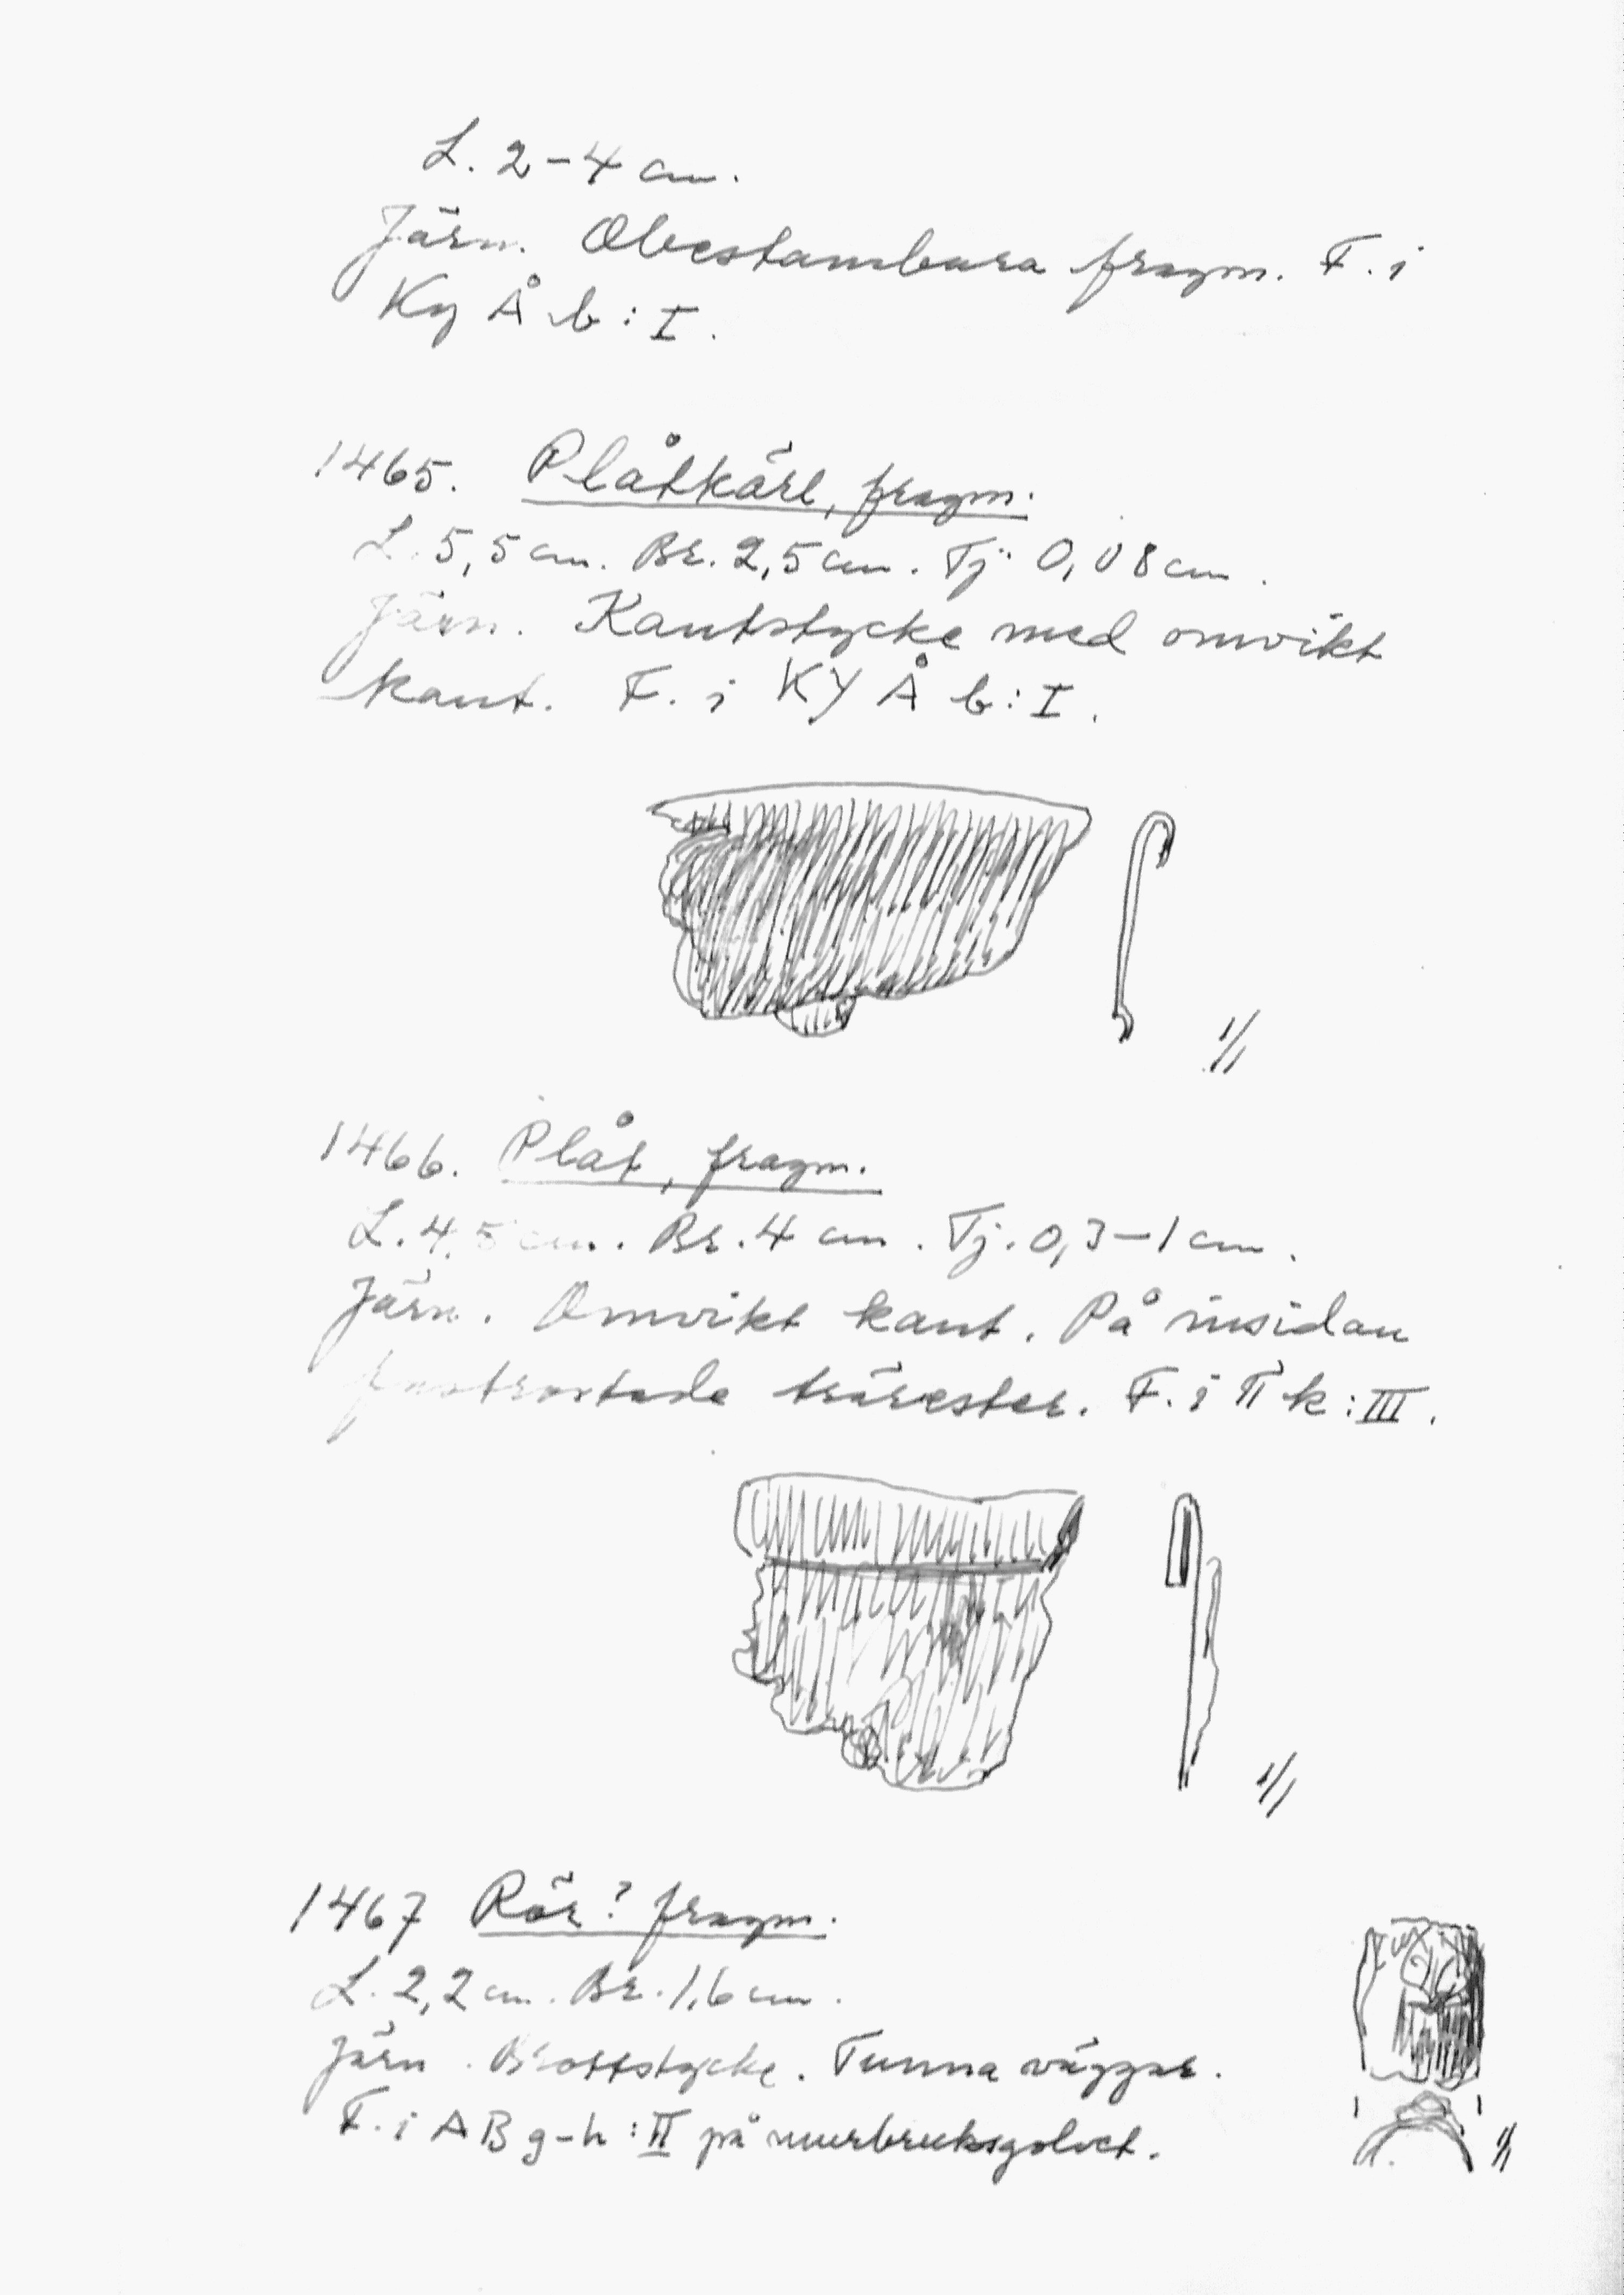 L. 2-4 cm.
Järn. Obestämbara fragm. F. i
Ky Å b : I.
1465. Plåtkärl, fragm.
L. 5,5 cm. Br. 2,5 cm. Tj 0,08 cm.
Järn. Kantstycke med omvikt
kant. F. i KY Å b : I.
1/1
1466. Plåt, fragm.
L. 4,5 cm. Br. 4 cm. Tj. 0,3-1 cm.
Järn. Omvikt kant. På insidan
fastrostade trärester. F. i Π k : III.
1/1
1467 Rör? fragm.
L. 2,2 cm. Br. 1,6 cm.
Järn. Brottstycke. Tunna väggar.
F. i AB g-h : II på murbruksgolvet.
1/1